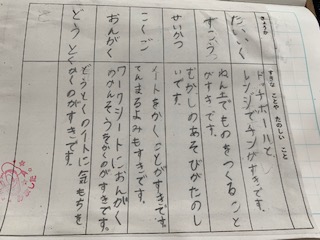 きょうか
すきな ことや たのしい こと
たいいく
ドッチボールと
レンジでチンがすきです。
ずこう
ねん土でものをつくること
がすきです。
せいかつ
むかしのあそびがたのし
いです。
こくご
イートをかくことがすきです。
てんまるよみもすきです。
おんがく
ワークシートにおんがく
のかんそうをかくのがすきです。
どうとく
どうとくのイートに気もちを
かくのがすきです。